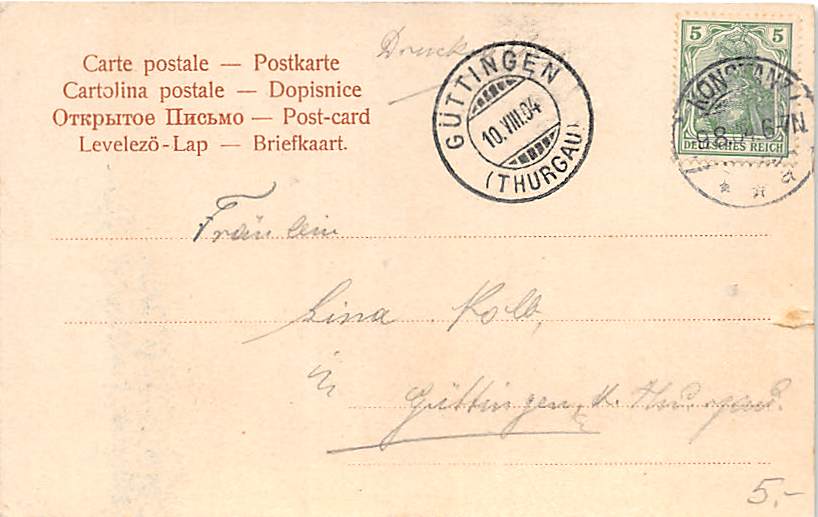 Carte postale — Postkarte
Cartolina postale — Dopisnice
Открытое Письмо — Post-card
Levelező-Lap — Briefkaart.
Druck
GÜTTINGEN
10.VIII.04
(THURGAU)
5 5
KONSTANZ
6-7N
DEUTSCHES REICH
Fräulein
Lina Kolb,
in
Güttingen, K. Thurgau.
5.-